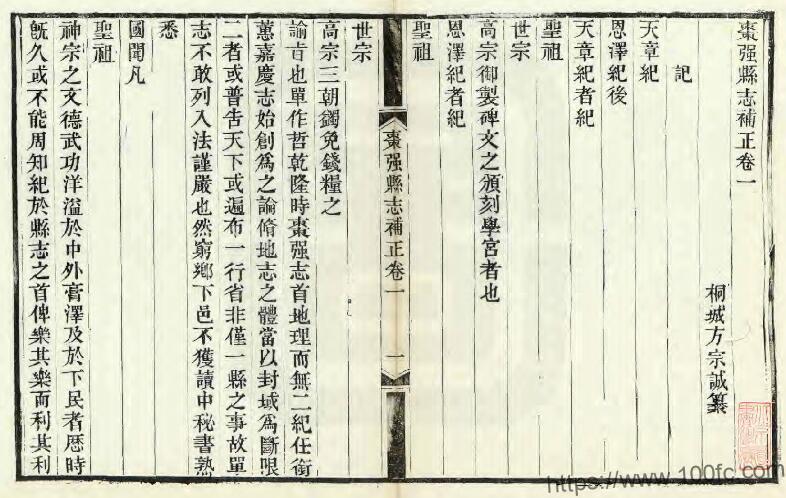 棗强縣志補正卷一
桐城方宗誠纂
記
天章紀
恩澤紀後
天章紀者紀
聖祖
世宗
高宗御製碑文之頒刻學宮者也
恩澤紀者紀
聖祖
棗强縣志補正卷一
一
世宗
高宗三朝蠲免錢糧之
諭旨也單作哲乾隆時棗强志首地理而無二紀任銜
蕙嘉慶志始創為之論脩地志之體當以封域為斷
二者或普告天下或遍布一行省非僅一縣之事故單
志不敢列入法謹嚴也然窮鄉下邑不獲讀中秘書熟
悉
國聞凡
聖祖
神宗之文德武功洋溢於中外膏澤及於下民者歷時
旣久或不能周知紀於縣志之首俾樂其樂而利其利
https://www.100fc.com